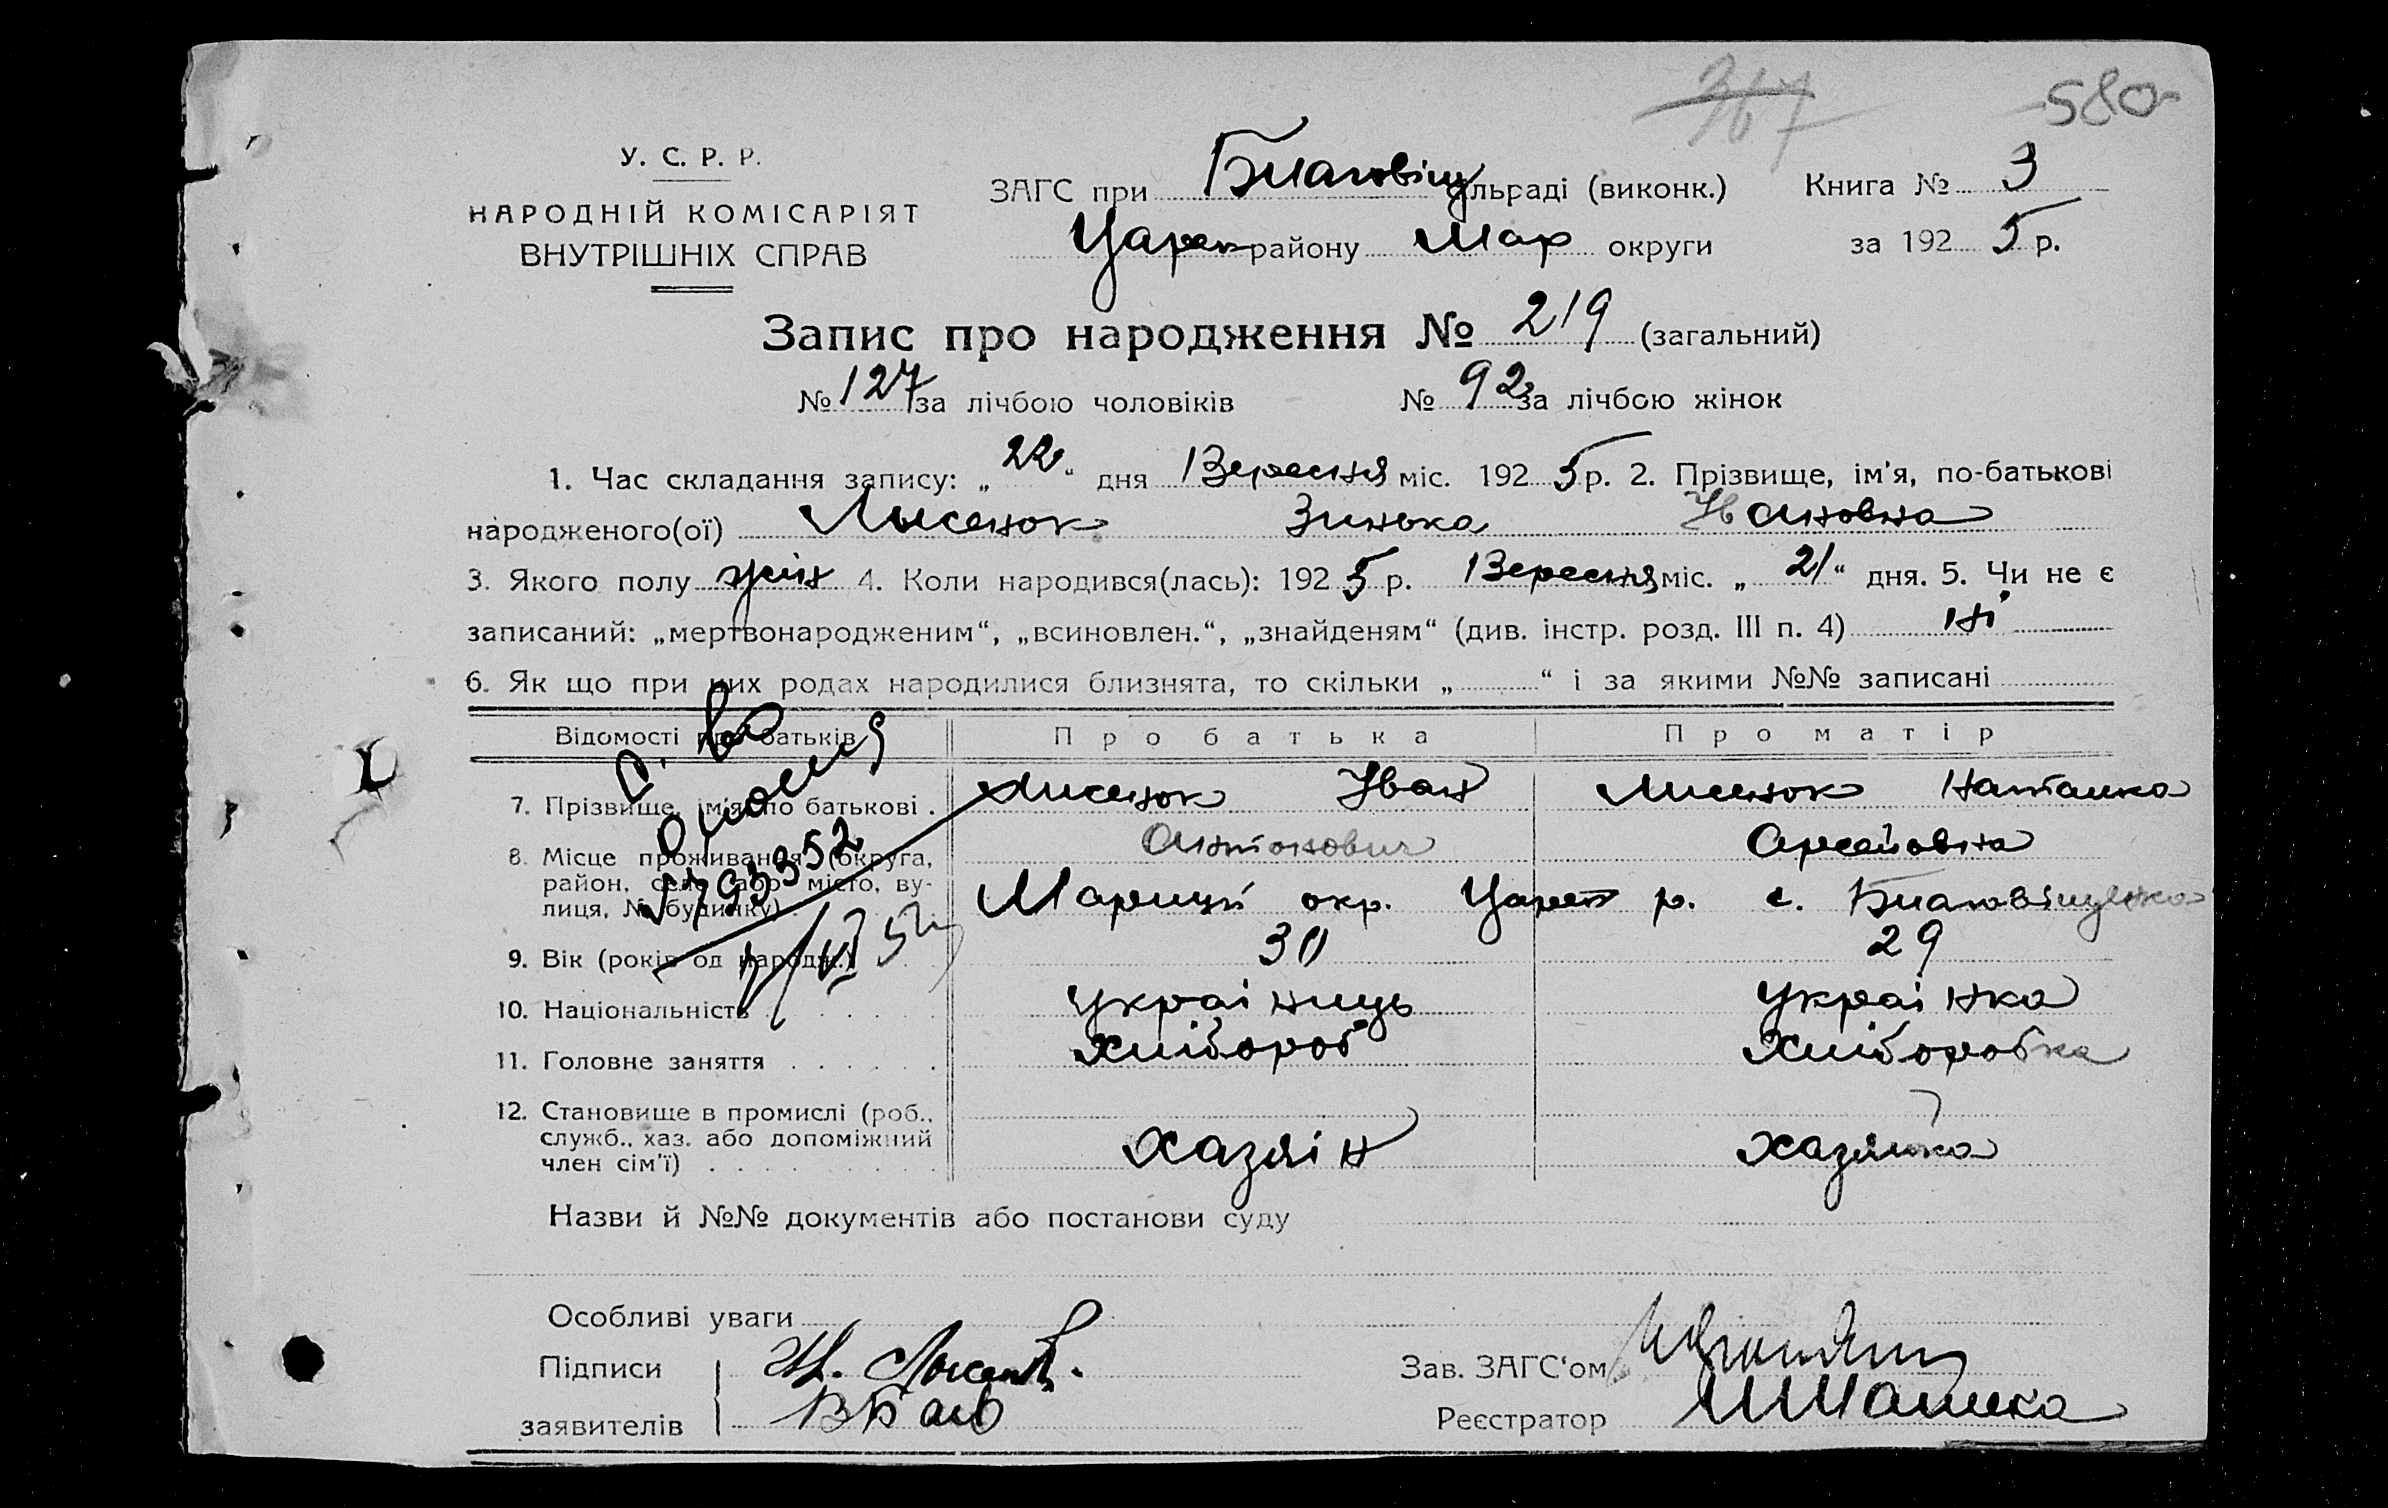 367
580
У. С. Р. Р.
НАРОДНІЙ КОМІСАРІЯТ
ВНУТРІШНІХ СПРАВ
ЗАГС при Благовіщ сільраді (виконк.) Книга № 3
Царек району Мар округи за 192 5 р.
Запис про народження № 219 (загальний)
№ 127 за лічбою чоловіків № 92 за лічбою жінок
1. Час складання запису: „ 22 “ дня Вересня міс. 192 5 р. 2. Прізвище, ім'я, по-батькові
народженого(ої) Лысенок Зинька Ивановна
3. Якого полу жін 4. Коли народився(лась): 192 5 р. Вересня міс. „ 21 “ дня. 5. Чи не є
записаний: „мертвонародженим“, „всиновлен.“, „знайденям“ (див. інстр. розд. III п. 4) ні
6. Як що при цих родах народилися близнята, то скільки „ “ і за якими №№ записані
Відомості про батьків Про батька Про матір
7. Прізвище, ім'я, по батькові . Лисенок Іван Лисенок Наташка
Антонович Арсеновна
8. Місце проживання (округа, район, село або місто, вулиця, № будинку) . Марищі окр. Царек р. с. Благовіщенка
793352
9. Вік (років од народж.) 30 29
10. Національність Украінець Украінка
11. Головне заняття Хлібороб Хліборобка
12. Становище в промислі (роб., служб., хаз. або допоміжний член сім'ї) Хазяін Хазяйка
Назви й №№ документів або постанови суду
Особливі уваги
Підписи Зав. ЗАГС'ом
заявителів Реєстратор